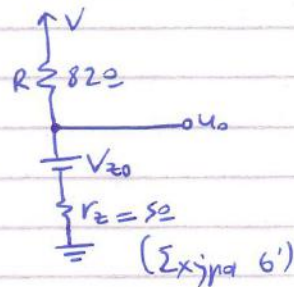 V
R 82Ω
u₀
V_z0
r_z = 5Ω
(Σχήμα 6')